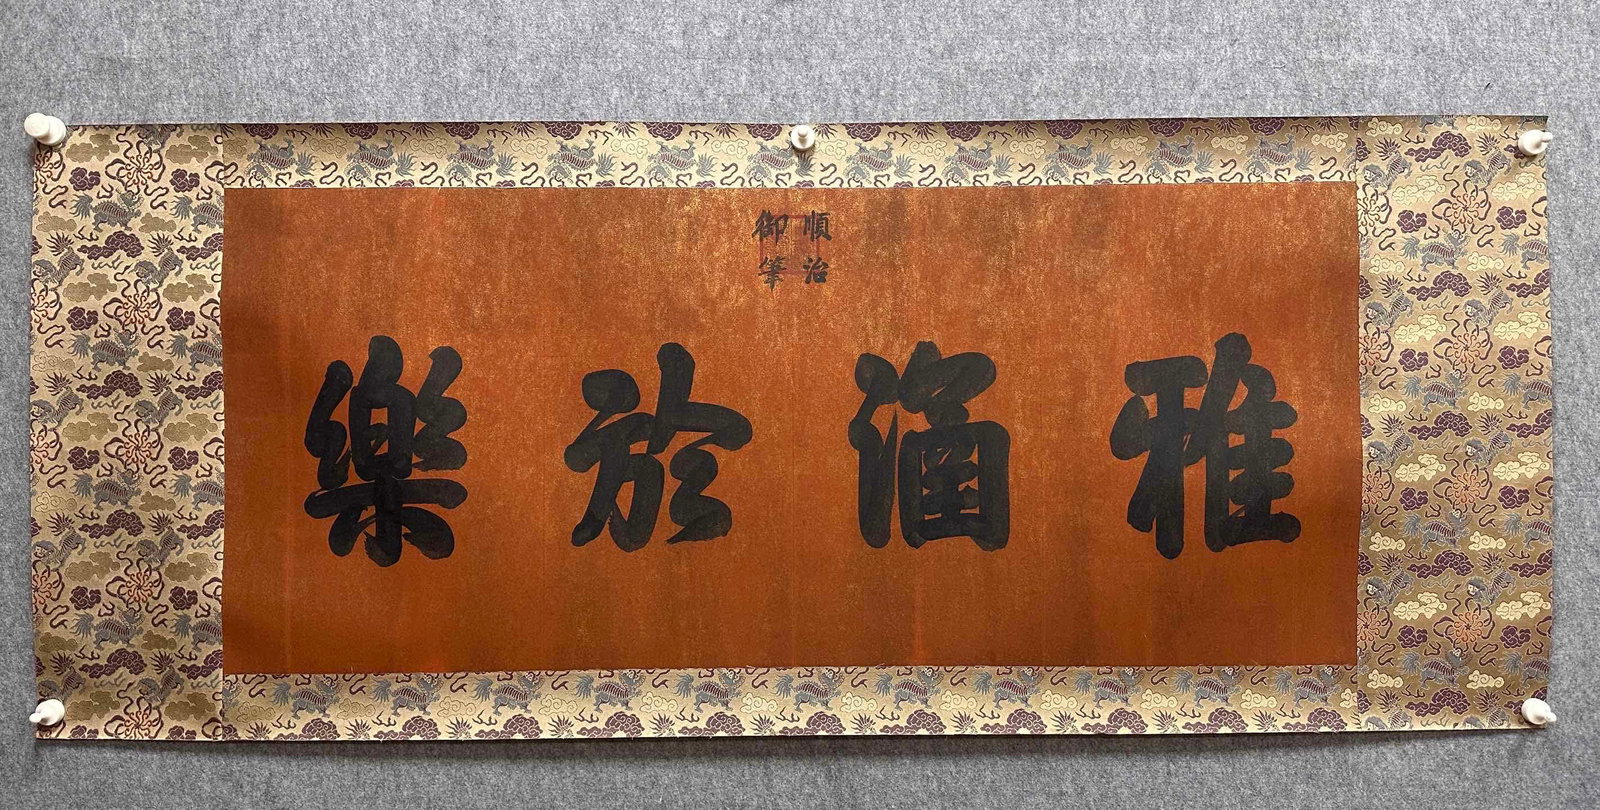 順治
御筆
雅涵於樂